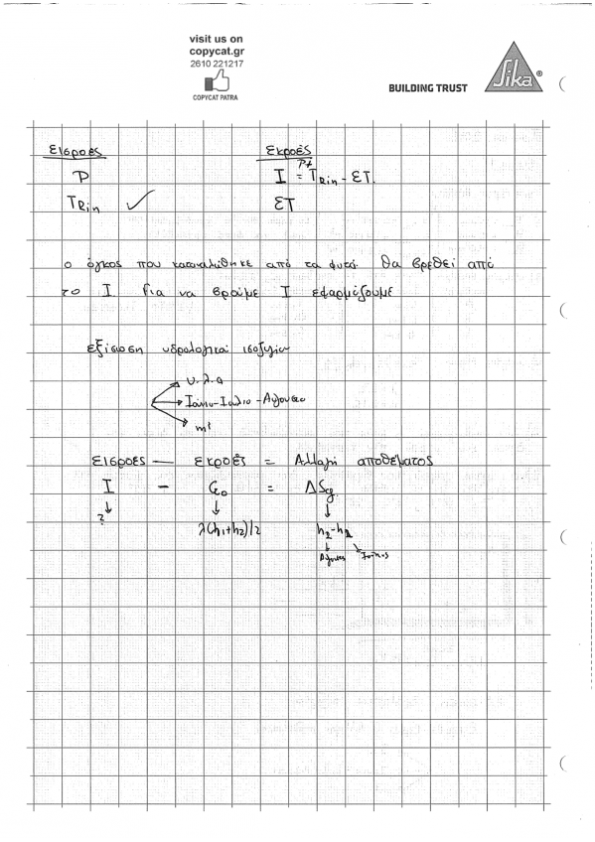 visit us on
copycat.gr
2610 221217
COPYCAT PATRA
BUILDING TRUST
Sika®
Εισροές Εκροές
P I = P+ TRin - ET.
TRin ✓ ET
ο όγκος που καταναλώθηκε από τα φυτά θα βρεθεί από
το I. Για να βρούμε I εφαρμόζουμε
εξίσωση υδρολογικού ισοζυγίου
υ.λ.α
Ιούνιο-Ιούλιο-Αύγουστο
m³
Εισροές — Εκροές = Αλλαγή αποθέματος
I - Go = ΔSg
? λ(h1+h2)/2 h2-h1
Αύγουστος Ιούνιος